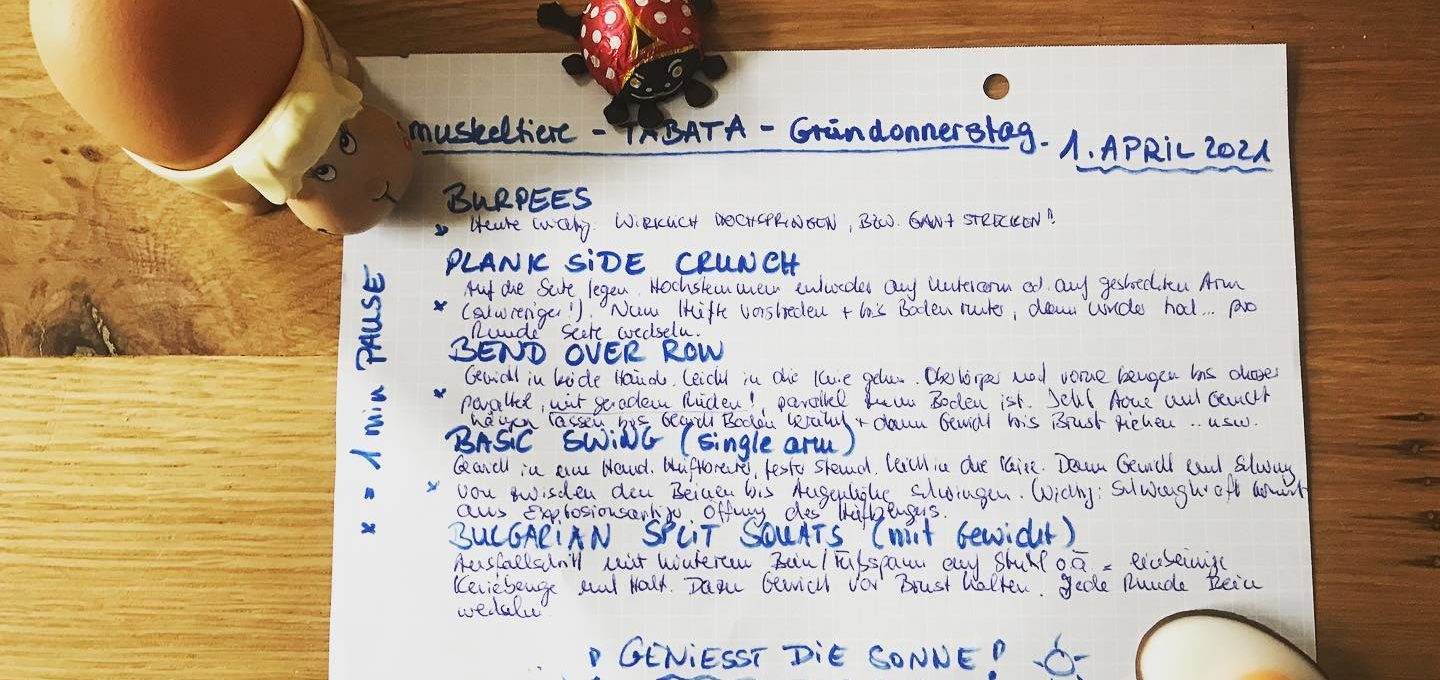 muskeltiere - TABATA - Gründonnerstag. 1. APRIL 2021
BURPEES
* Heute wichtig: WIRKLICH HOCHSPRINGEN, BZW. GANZ STRECKEN!
PLANK SIDE CRUNCH
Auf die Seite legen. Hochstemmen entweder auf Unterarm od. auf gestreckten Arm
* (schwieriger!). Nun Hüfte vorstrecken + bis Boden runter, dann wieder hoch... pro
Runde Seite wechseln.
BEND OVER ROW
Gewicht in beide Hände. Leicht in die Knie gehen. Oberkörper nach vorne beugen bis dieser
* parallel, mit geradem Rücken!, parallel zum Boden ist. Jetzt Arme mit Gewicht
hängen lassen bis Gewicht Boden berührt + dann Gewicht bis Brust ziehen .. usw.
BASIC SWING (single arm)
Gewicht in eine Hand. Hüftbreiter, fester Stand. Leicht in die Knie. Dann Gewicht mit Schwung
* von zwischen den Beinen bis Augenhöhe schwingen. Wichtig: Schwungkraft kommt
aus explosionsartiger Öffnung des Hüftbeugers.
BULGARIAN SPLIT SQUATS (mit Gewicht)
Ausfallschritt mit hinterem Bein/Fußspann auf Stuhl oä = einbeinige
Kniebeuge mit Halt. Dazu Gewicht vor Brust halten. Jede Runde Bein
wechseln.
! GENIESST DIE SONNE!
* = 1 min PAUSE